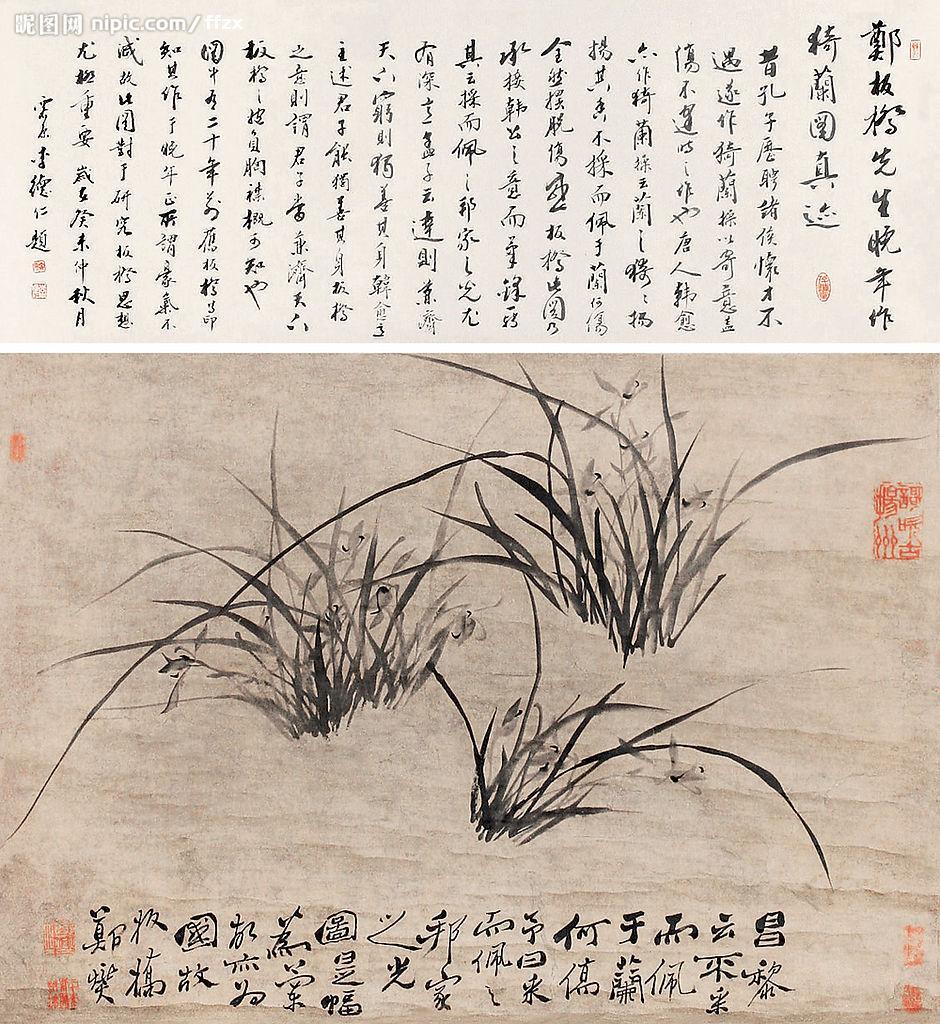 昵图网 nipic.com/ffzx
鄭板橋先生晚年作
猗蘭图真迹
昔孔子歷聘諸侯懷才不
遇遂作猗蘭操以寄意蓋
傷不逢時之作也唐人韓愈
亦作猗蘭操云蘭之猗猗揚
揚其香不採而佩于蘭何傷
全然摆脱傷感板橋此图乃
承接韓公之意而筆鋒
其云採而佩之邦家之光尤
有深意孟子云達則兼濟
天下窮則獨善其身韓愈
主述君子能獨善其身板橋
之意則謂君子當兼濟天下
板橋之抱負胸襟概可知也
图中有二十年前舊板橋之印
知其作于晚年正所謂豪氣不
减故此图對于研究板橋思想
尤極重要 歲在癸未仲秋月
李德仁題
歌吹古揚州
昌黎
云不采
而佩
于蘭
何傷
予曰采
而佩之
邦家
之光
圖是幅
為蘭
亦为
國故
板橋
鄭燮